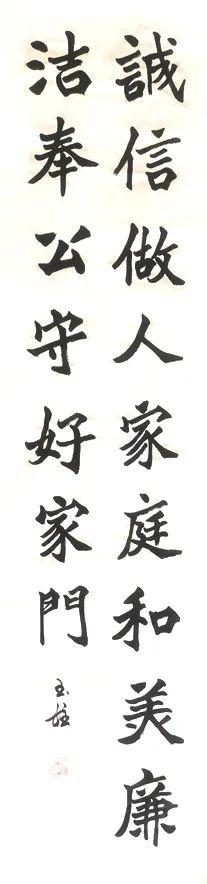 誠信做人家庭和美廉
洁奉公守好家門
玉柱